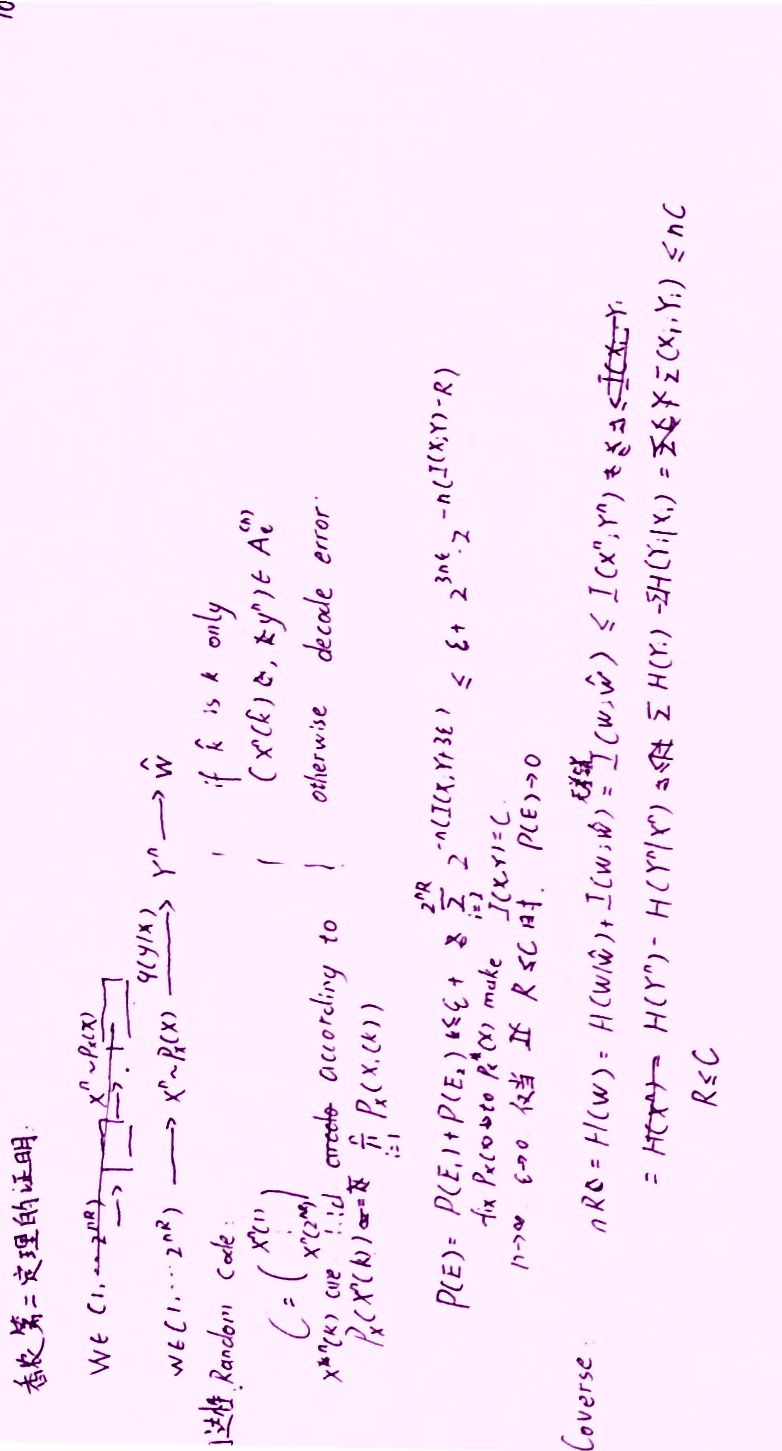 香农第二定理的证明:
W∈(1,···2^{nR}) → X^n~P_x(X) →
W∈(1,···2^{nR}) → X^n~P_x(X) —q(y|x)→ Y^n → Ŵ
达性. Random Code:
C = (X^n(1) ⋮ X^n(2^{nR}))
X^n(k) are i.i.d according to
P_x(X^n(k)) = ∏_{i=1}^{n} P_x(X_i(k))
if k̂ is k only
(X^n(k̂), y^n) ∈ A_ε^{(n)}
otherwise decode error.
P(E) = P(E_1) + P(E_2) ≤ ε + Σ_{i=2}^{2^{nR}} 2^{-n(I(X;Y)+3ε)} ≤ ε + 2^{3nε}·2^{-n(I(X;Y)-R)}
fix P_x(x) to P_x^*(X) make I(X,Y)=C.
n→∞ ε→0 仅当 R≤C 时. P(E)→0
Coverse:
nR = H(W) = H(W|Ŵ) + I(W;Ŵ) = I(W;Ŵ) ≤ I(X^n;Y^n)
= H(Y^n) - H(Y^n|X^n) Σ H(Y_i) - ΣH(Y_i|X_i) = Σ(X_i,Y_i) ≤ nC
R≤C